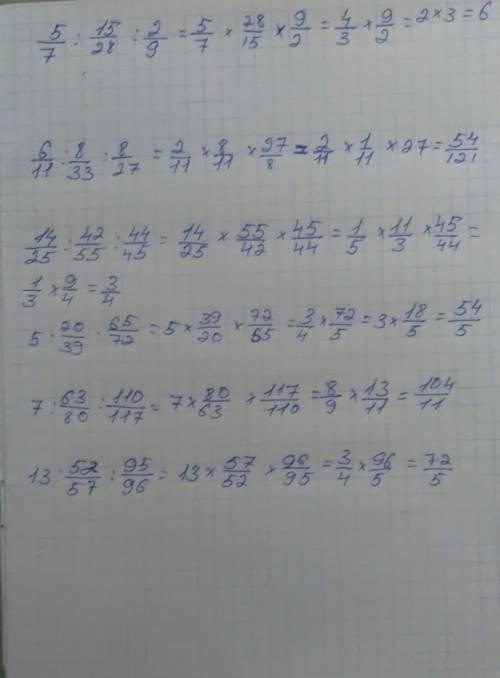 5/7 : 15/28 : 2/9 = 5/7 × 28/15 × 9/2 = 4/3 × 9/2 = 2 × 3 = 6
6/11 : 8/33 : 8/27 = 2/11 × 8/11 × 27/8 = 2/11 × 1/11 × 27 = 54/121
14/25 : 42/55 : 44/45 = 14/25 × 55/42 × 45/44 = 1/5 × 11/3 × 45/44 =
1/3 × 9/4 = 3/4
5 : 20/39 : 65/72 = 5 × 39/20 × 72/65 = 3/4 × 72/5 = 3 × 18/5 = 54/5
7 : 63/80 : 110/117 = 7 × 80/63 × 117/110 = 8/9 × 13/11 = 104/11
13 : 52/57 : 95/96 = 13 × 57/52 × 96/95 = 3/4 × 96/5 = 72/5